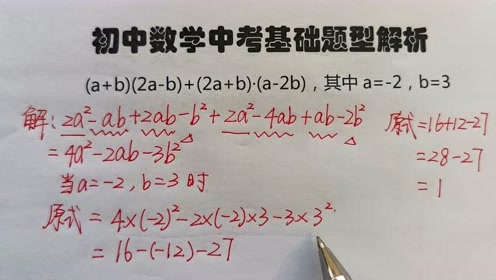 初中数学中考基础题型解析
(a+b)(2a-b)+(2a+b)·(a-2b)，其中 a=-2，b=3
解: 2a²-ab+2ab-b²+2a²-4ab+ab-2b²
=4a²-2ab-3b²
当a=-2,b=3时
原式=4×(-2)²-2×(-2)×3-3×3²
=16-(-12)-27
原式=16+12-27
=28-27
=1